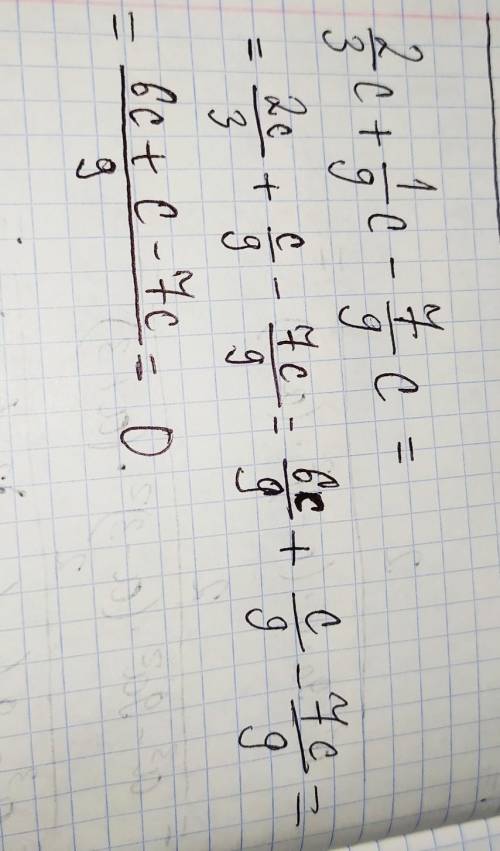 2/3 c + 1/9 c - 7/9 c =
= 2c/3 + c/9 - 7c/9 = 6c/9 + c/9 - 7c/9 =
= 6c + c - 7c/9 = 0